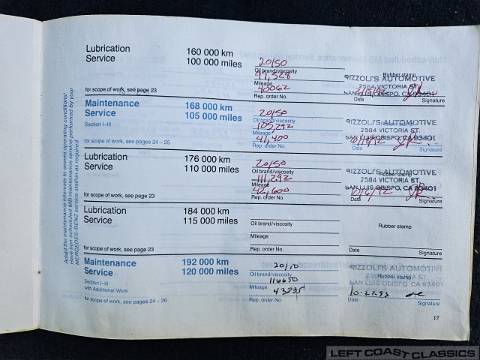 Lubrication
Service
160 000 km
100 000 miles
20/50
Oil brand/viscosity
97,528
Mileage
40062
Rep. order No.
RIZZOLI'S AUTOMOTIVE
Rubber stamp
2584 VICTORIA ST.
SAN LUIS OBISPO, CA 93401
Date
Signature
for scope of work, see page 23
Maintenance
Service
Section I-III
168 000 km
105 000 miles
20/50
Oil brand/viscosity
105,292
Mileage
41,400
Rep. order No.
RIZZOLI'S AUTOMOTIVE
2584 VICTORIA ST.
SAN LUIS OBISPO, CA 93401
Date
Signature
for scope of work, see pages 24 - 25
Lubrication
Service
176 000 km
110 000 miles
20/50
Oil brand/viscosity
111,292
Mileage
42,600
Rep. order No.
RIZZOLI'S AUTOMOTIVE
Rubber stamp
2584 VICTORIA ST.
SAN LUIS OBISPO, CA 93401
Date
Signature
for scope of work, see page 23
Lubrication
Service
184 000 km
115 000 miles
Oil brand/viscosity
Mileage
Rep. order No.
Rubber stamp
Date
Signature
for scope of work, see page 23
Maintenance
Service
Section I-III
with Additional Work
192 000 km
120 000 miles
Oil brand/viscosity
116650
Mileage
43835
Rep. order No.
RIZZOLI'S AUTOMOTIVE
Rubber stamp
2584 VICTORIA ST.
SAN LUIS OBISPO, CA 93401
Date
Signature
for scope of work, see pages 24 - 26
17
LEFT COAST CLASSICS